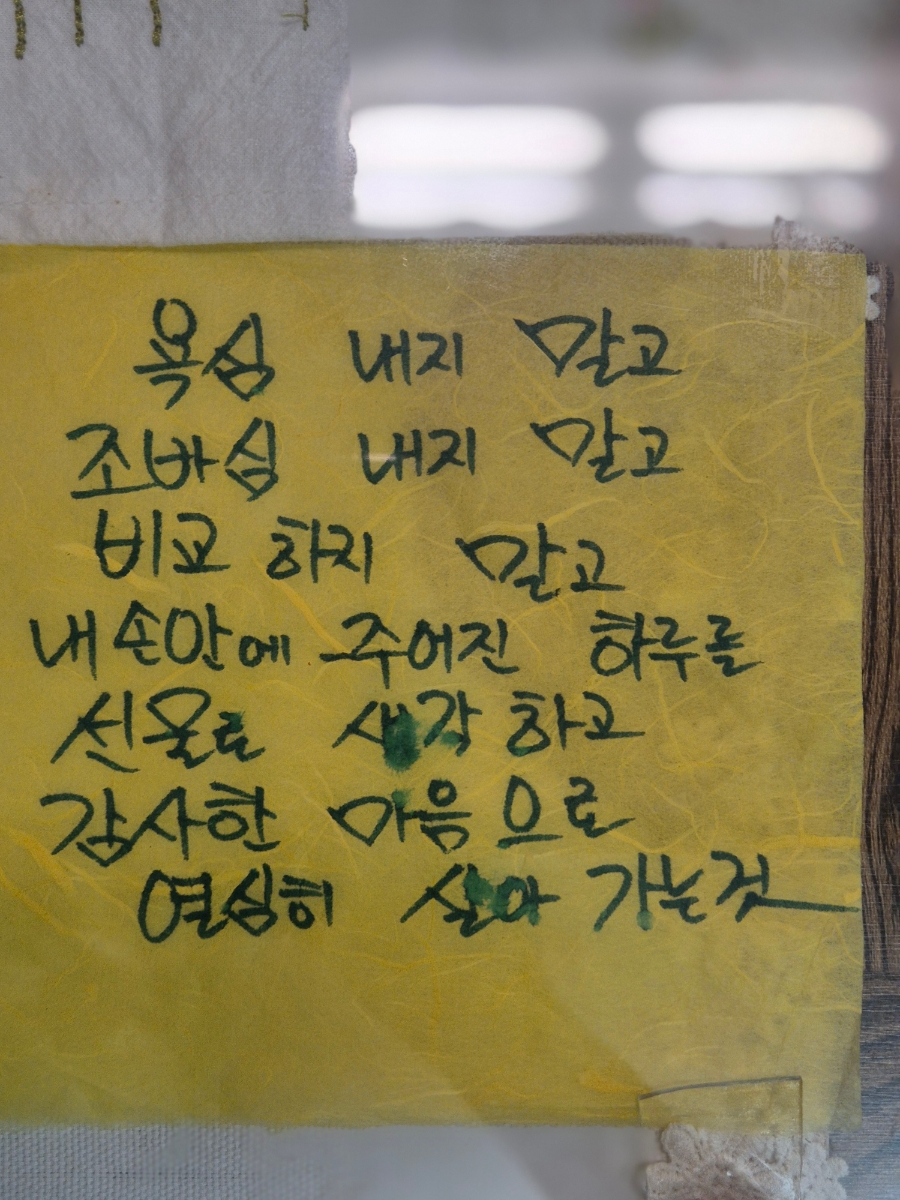 욕심 내지 말고
조바심 내지 말고
비교 하지 말고
내 손안에 주어진 하루를
선물로 생각 하고
감사한 마음 으로
열심히 살아 가는것